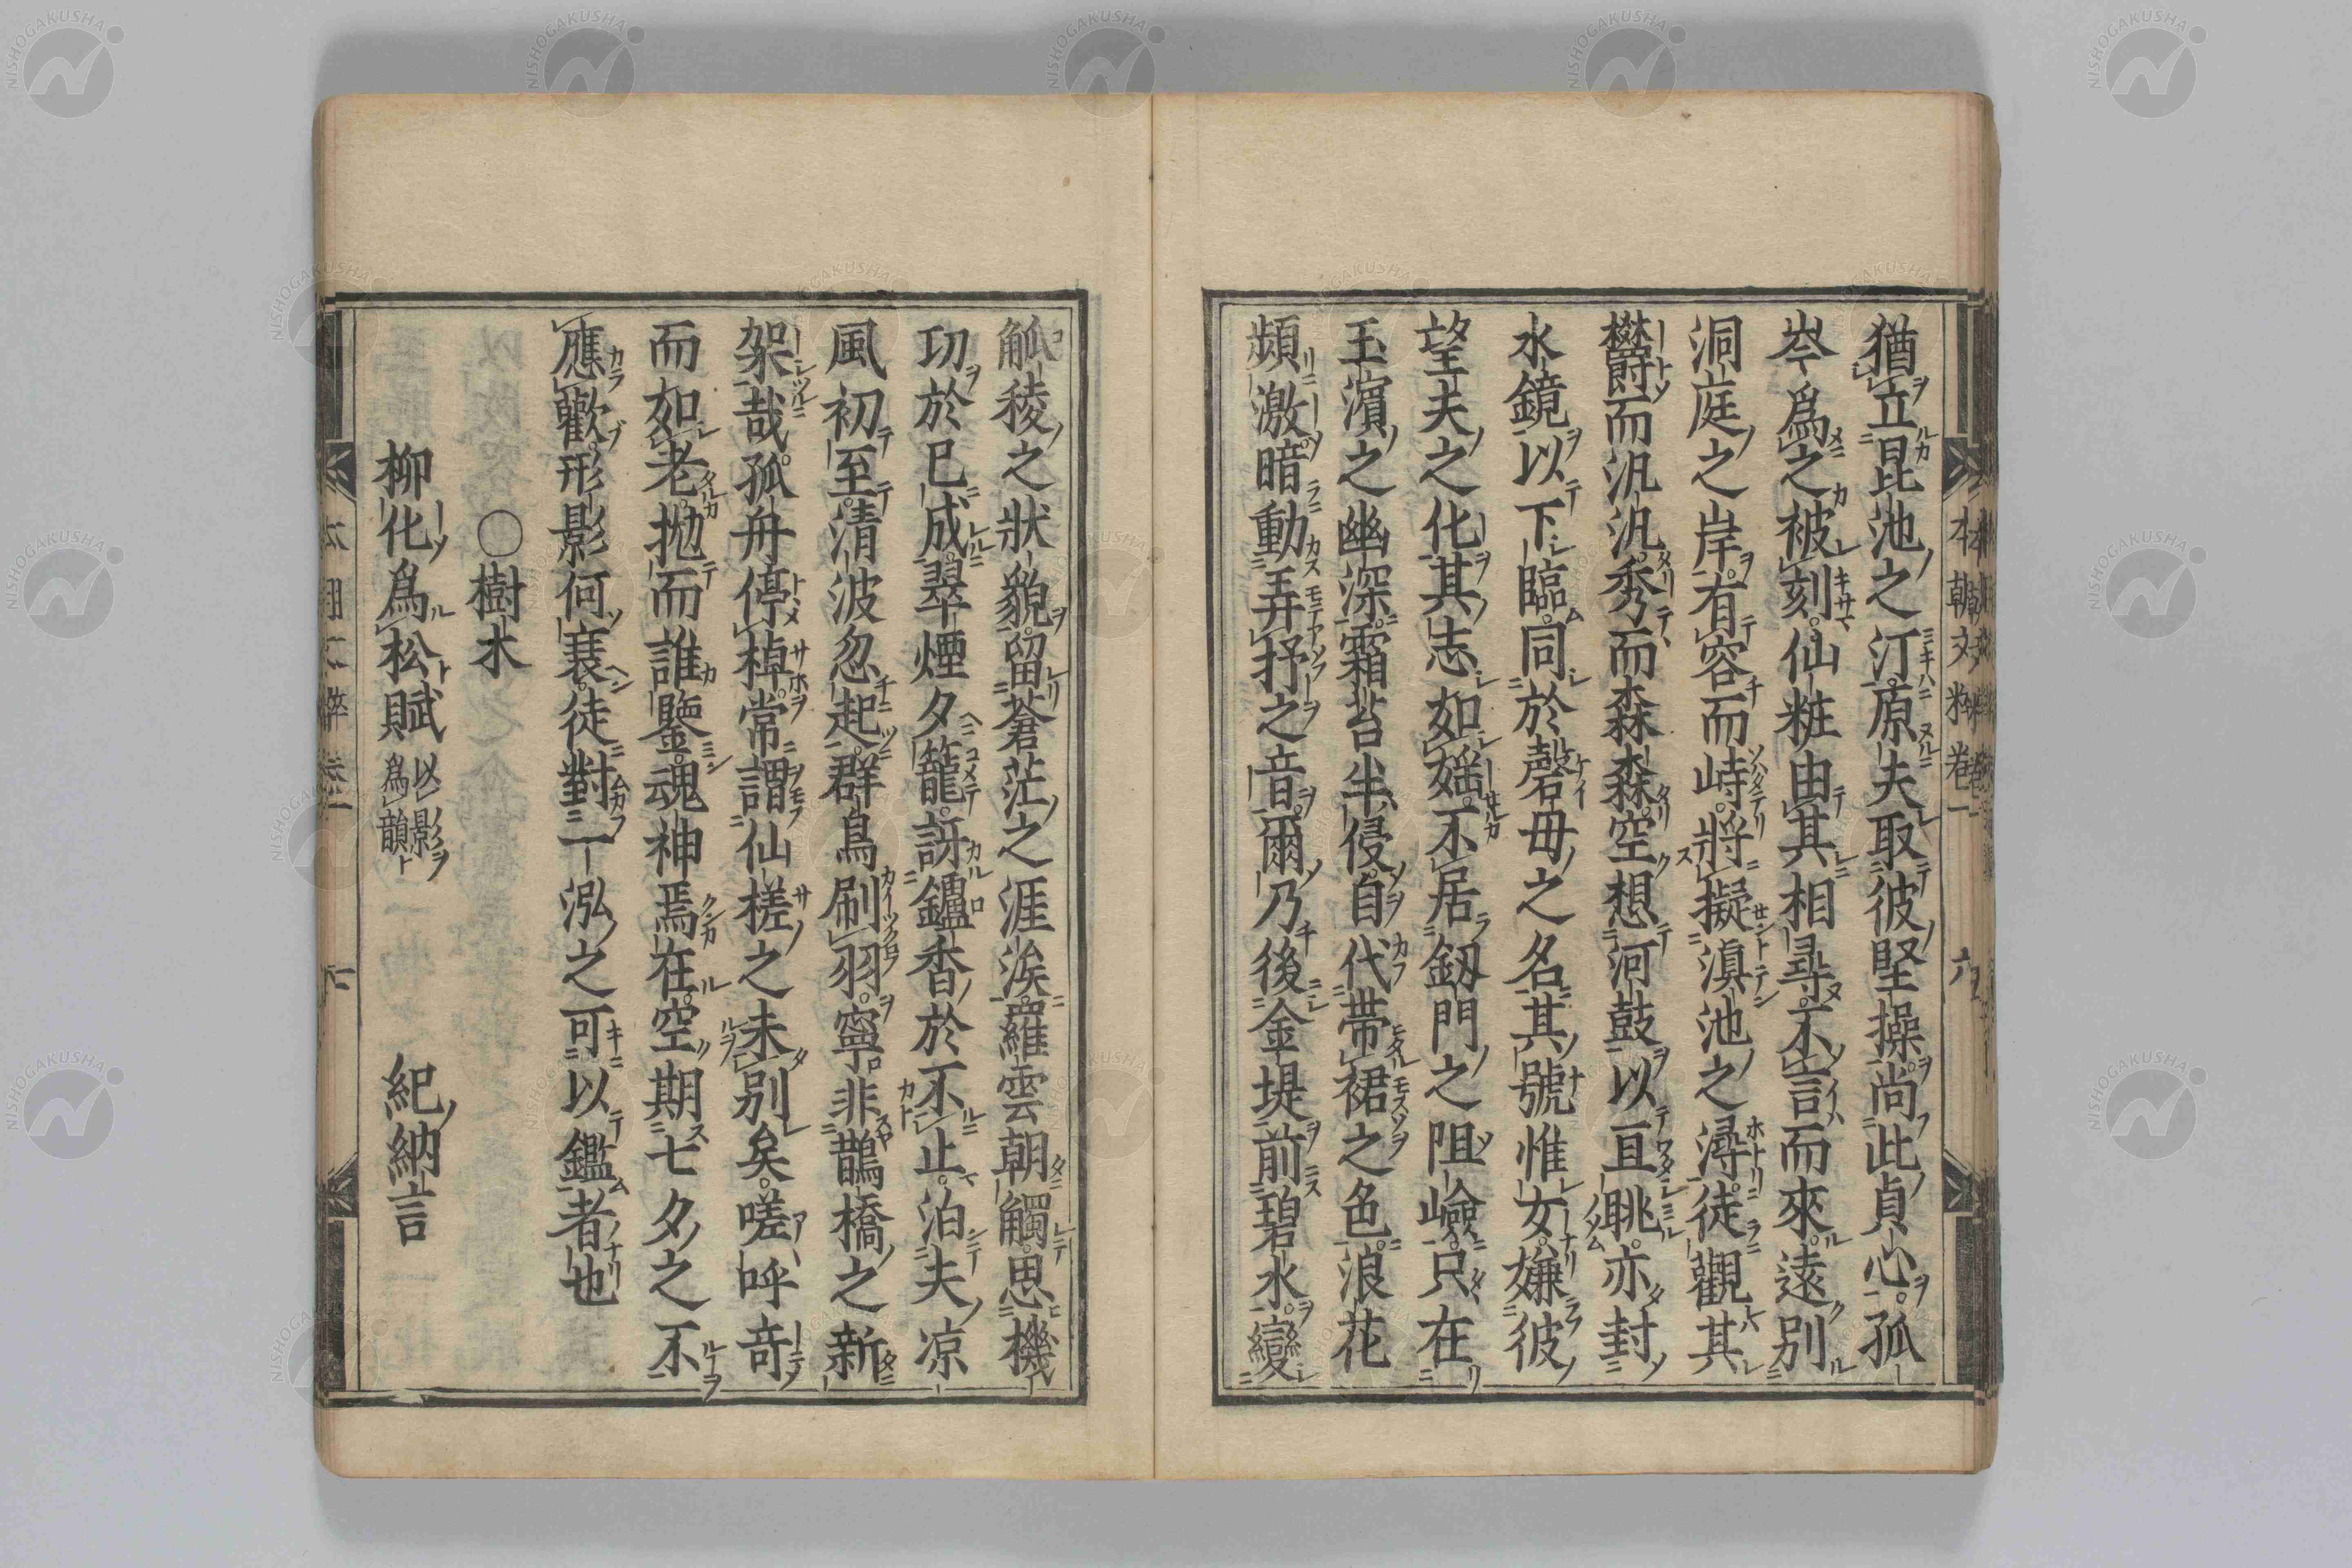 猶立昆池之汀原夫取彼堅操尚此貞心孤
岑爲之被刻仙粧由其相尋不言而來遠別
洞庭之岸有容而峙將擬滇池之潯徒觀其
欝而汎汎秀而森森空想河鼓以亘眺亦封
水鏡以下臨同於磬毋之名其號惟女嫌彼
望夫之化其志如婬不居釼門之阻嶮只在
玉濵之幽深霜苔半侵自代帶裙之色浪花
頻激暗動弄抒之音爾乃後金堤前碧水變
觚稜之狀貌留蒼茫之涯涘羅雲朝觸思機
㓛於已成翠煙夕籠訝鑪香於不止泊夫凉
風初至清波忽起群鳥刷羽寧非鵲橋之新
架哉孤舟停棹常謂仙槎之未別矣嗟呼竒
而如老抛而誰鑒魂神焉在空期七夕之不
應歡形影何襄徒對一泓之可以鑑者也
〇樹木
柳化爲松賦 以影爲韻 紀納言
本朝文粹卷一
六